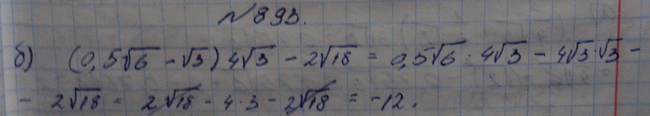 №893.
б) (0,5√6 - √3)4√3 - 2√18 = 0,5√6 · 4√3 - 4√3·√3 -
- 2√18 = 2√18 - 4·3 - 2√18 = -12.